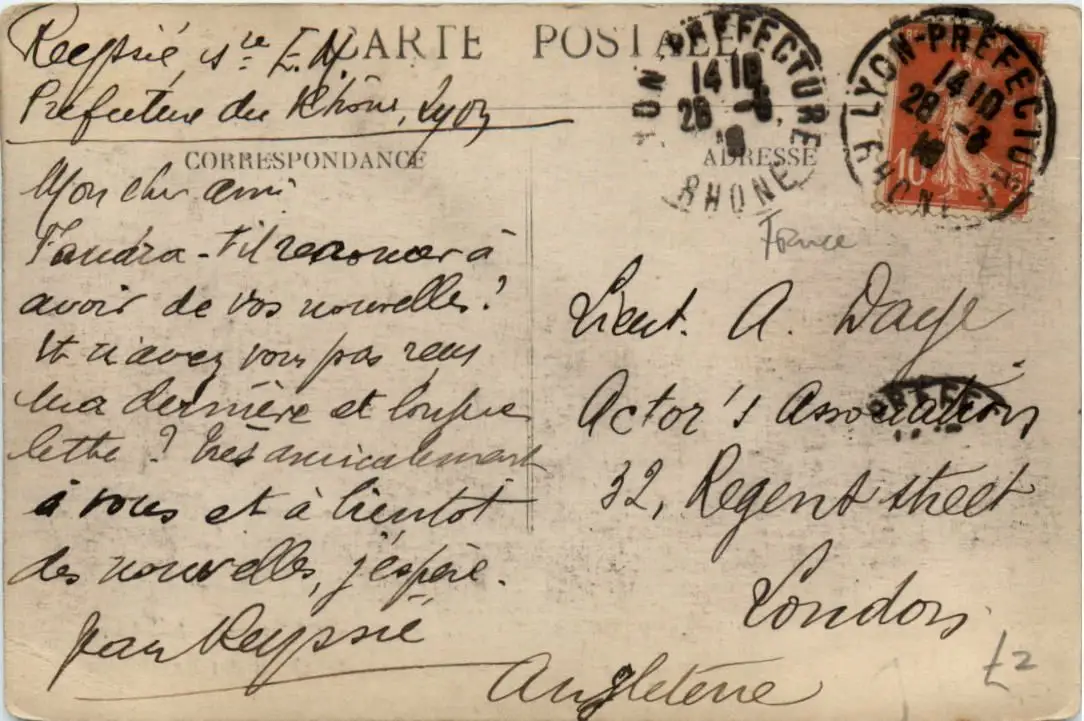 CARTE POSTALE
Reyssié, Ste E.M
Préfecture du Rhône, Lyon
CORRESPONDANCE
Mon cher ami
Faudra-t-il renoncer à
avoir de vos nouvelles?
Et n'avez vous pas reçu
ma dernière et longue
lettre? Très amicalement
à vous et à bientôt
des nouvelles, j'espère.
Jean Reyssié
LYON-PREFECTURE
14 10
28 -8
RHONE
LYON-PREFECTURE
14 10
28 -8
RHONE
10
ADRESSE
France
Lieut. A. Daye
Actor's Association
PREFE
32, Regent street
London
Angleterre
£2